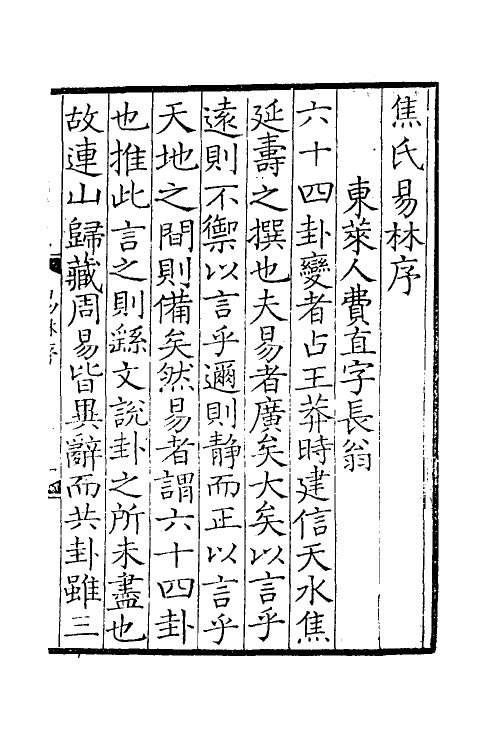 焦氏易林序
東萊人費直字長翁
六十四卦變者占王莽時建信天水焦
延壽之撰也夫易者廣矣大矣以言乎
遠則不禦以言乎邇則静而正以言乎
天地之間則備矣然易者謂六十四卦
也推此言之則繇文說卦之所未盡也
故連山歸藏周易皆異辭而共卦雖三
易林序